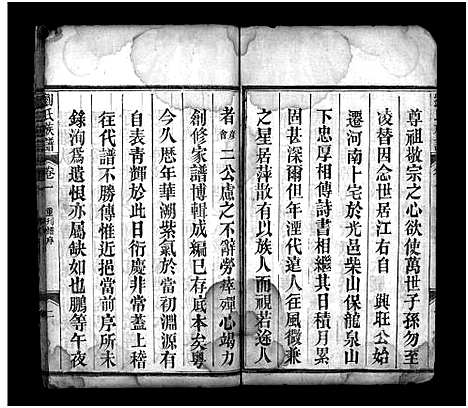 尊祖敬宗之心欲使萬世子孫勿至
凌替因念世居江右自　興旺公始
遷河南卜宅於光邑柴山保龍泉山
下忠厚相傳詩書相繼其日積月累
固甚深爾但年湮代遠人往風微兼
之星居萍散有以族人而視若途人
者彦會二公慮之不辭勞瘁殫心竭力
創修家譜博輯成編已存底本矣粵
今久歷年華湖紫氣於當初淵源有
自表青輝於此日衍慶非常蓋上稽
徃代譜不勝傳惟近挹前序所未
錄洵爲遺恨亦屬缺如也鵬等午夜
劉氏族譜　卷一　重刊譜序　二